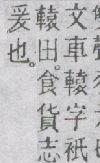 文車轅字祇
轅田。食貨志
爰也。